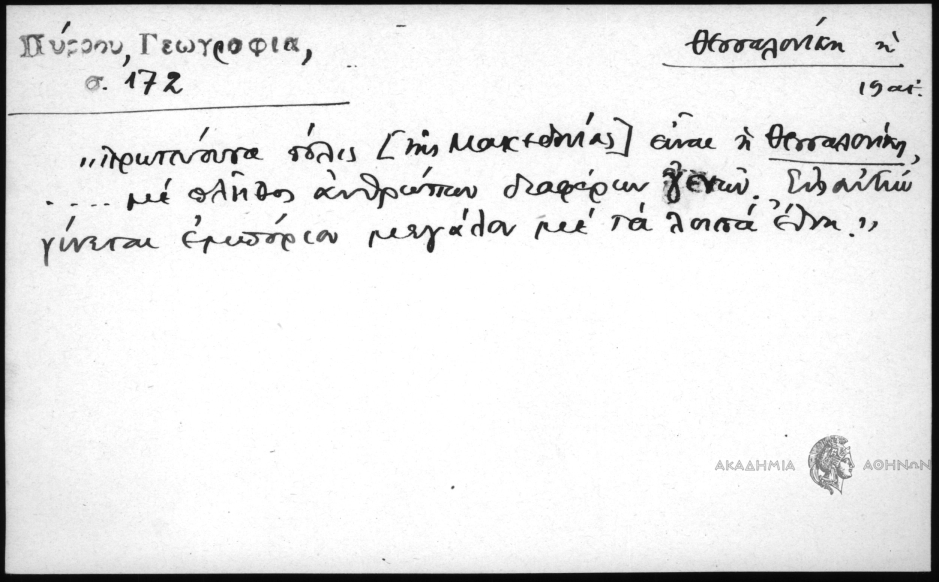 Πύρρου, Γεωγραφια,
σ. 172
Θεσσαλονίκη ἡ
19 αἰ.
„πρωτεύουσα πόλις [τῆς Μακεδονίας] εἶναι ἡ Θεσσαλονίκη,
..... μέ πλῆθος ἀνθρώπων διαφόρων γενῶν. Εἰς αὐτήν
γίνεται ἐμπόριον μεγάλον μέ τά λοιπά ἔθνη.”
ΑΚΑΔΗΜΙΑ ΑΘΗΝΩΝ